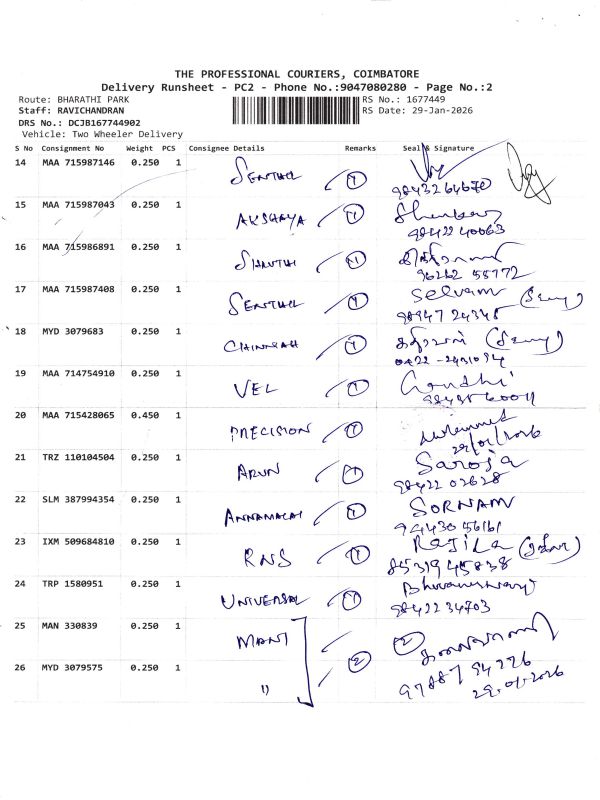 THE PROFESSIONAL COURIERS, COIMBATORE
Delivery Runsheet - PC2 - Phone No.:9047080280 - Page No.:2
Route: BHARATHI PARK RS No.: 1677449
Staff: RAVICHANDRAN RS Date: 29-Jan-2026
DRS No.: DCJB167744902
Vehicle: Two Wheeler Delivery
S No Consignment No Weight PCS Consignee Details Remarks Seal & Signature
14 MAA 715987146 0.250 1 SENTHIL 1
9843264670
15 MAA 715987043 0.250 1 AKSHAYA 1
98422 40063
16 MAA 715986891 0.250 1 SHRUTHI 1
96262 55772
17 MAA 715987408 0.250 1 SENTHIL 1 Selvam
98947 24345
18 MYD 3079683 0.250 1 CHINNIAH 1
0422-2431094
19 MAA 714754910 0.250 1 VEL 1 Gandhi
20 MAA 715428065 0.450 1 PRECISION 1
29/01/2026
21 TRZ 110104504 0.250 1 ARUN 1 Saroja
98422 02628
22 SLM 387994354 0.250 1 ANNAMALAI 1 SORNAM
94430 56161
23 IXM 509684810 0.250 1 RNS 1 Rajila
8531945838
24 TRP 1580951 0.250 1 UNIVERSAL 1 Bhuvaneswari
98422 34703
25 MAN 330839 0.250 1 MANI 2 2
26 MYD 3079575 0.250 1 "
97887 94226
29.01.2026